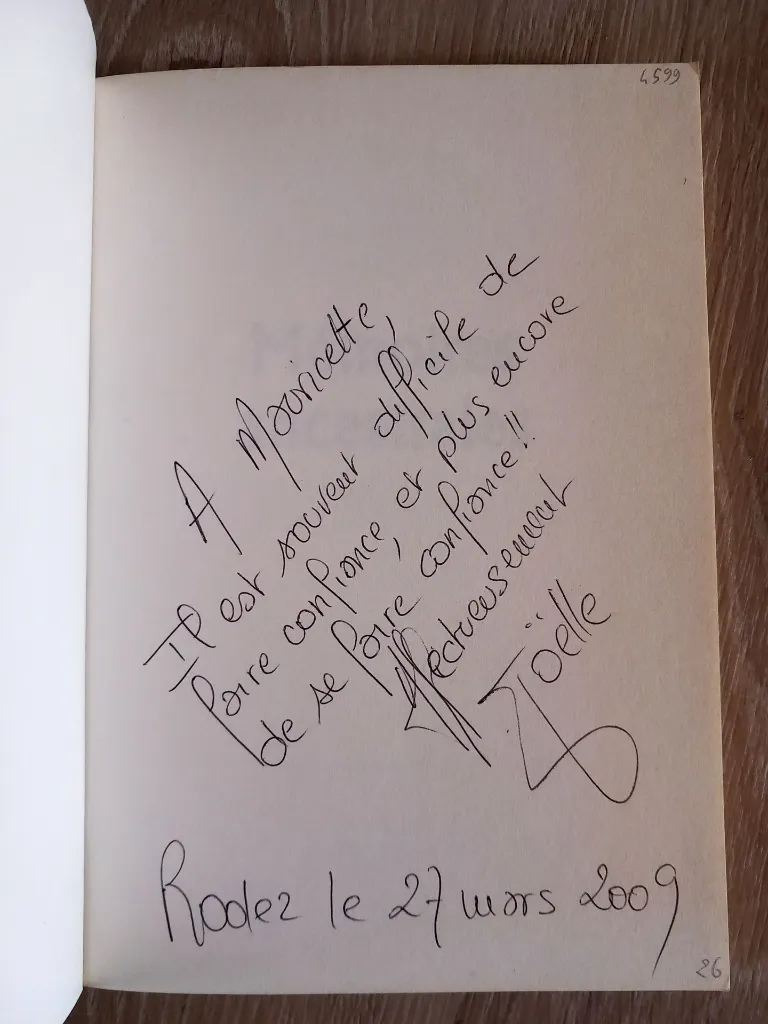 4599
A Mauricette,
Il est souvent difficile de
faire confiance, et plus encore
de se faire confiance !!
Affectueusement
Joëlle
Rodez le 27 mars 2009
26